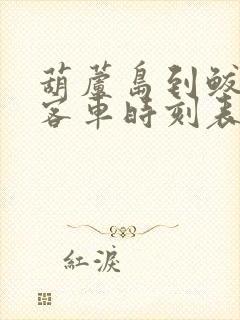 葫蘆島到鲅
客車時刻表
紅淚